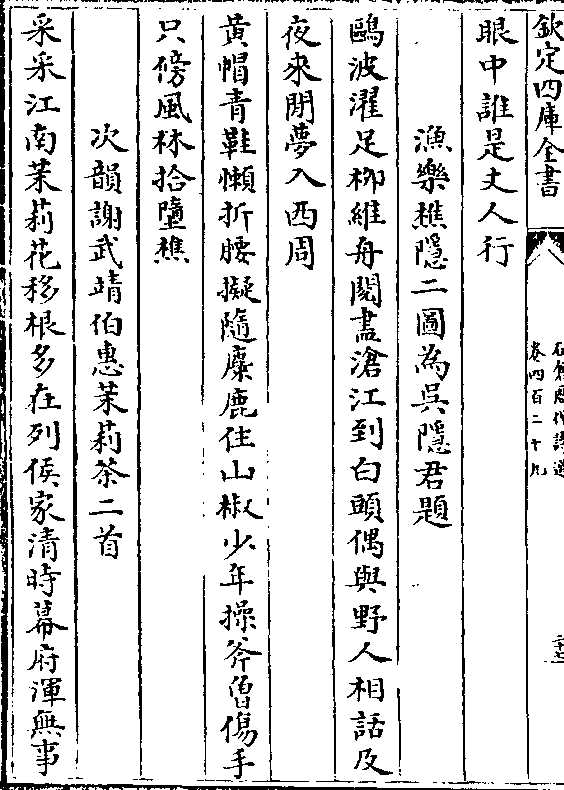 欽定四庫全書
石倉歷代詩選
卷四百二十九
二十七
眼中誰是丈人行
漁樂樵隱二圖為吳隱君題
鷗波濯足柳維舟閱盡滄江到白頭偶與野人相話及
夜來閒夢入西周
黃帽青鞋懶折腰擬隨麋鹿住山椒少年操斧曾傷手
只傍風林拾墮樵
次韻謝武靖伯惠茉莉茶二首
采采江南茉莉花移根多在列侯家清時幕府渾無事